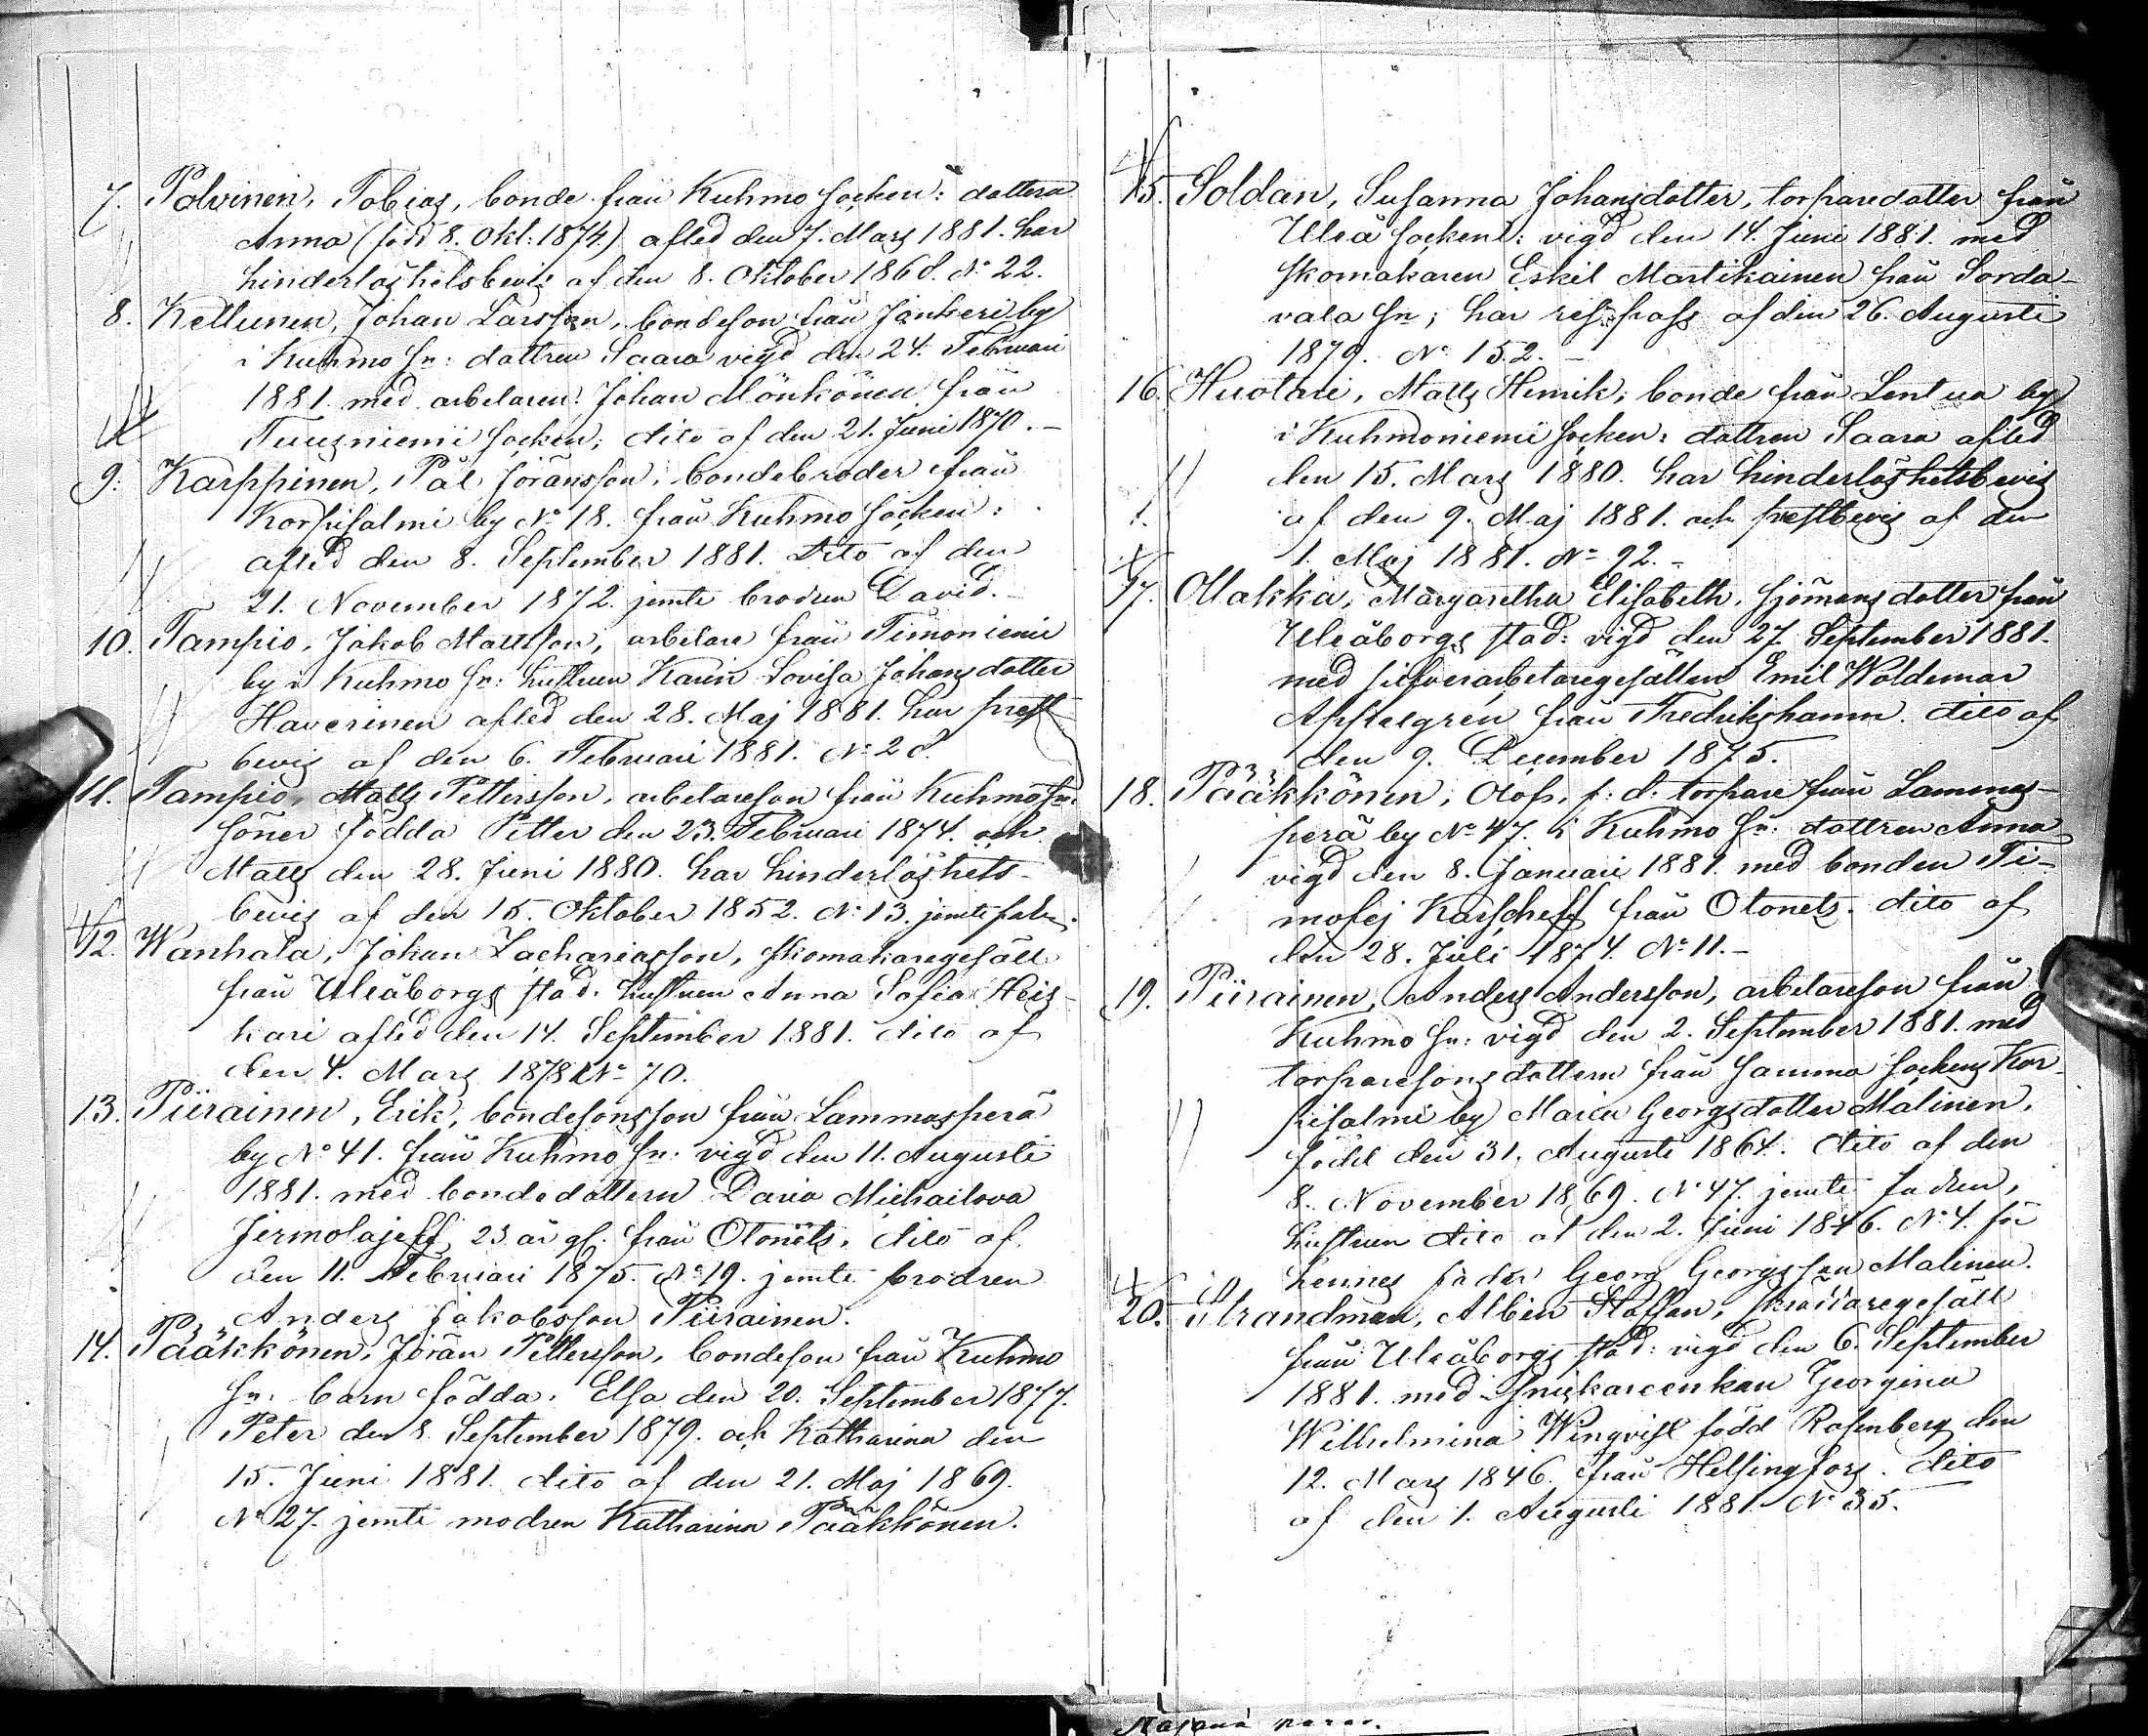 7. Polvinen, Tobias, bonde från Kuhmo socken: dottern
Anna (född 8. Okt: 1874) afled den 7. Mars 1881. har
hinderlöshetsbevis af den 8. Oktober 1868. No 22.
8. Kettunen, Johan Larsson, bondeson från Jonkeri by
i Kuhmo sn: dottren Saara vigd den 24. Februari
1881. med arbetaren Johan Mönkönen från
Tuusniemi socken; dito af den 21. Juni 1870. –
9. Karppinen, Pål Jöransson, bondebroder från
Korpisalmi by No 18. från Kuhmo socken:
afled den 8. September 1881. dito af den
21. November 1872. jemte brodren David. –
10. Tampio, Jakob Mattsson, arbetare från Timoniemi
by i Kuhmo sn: hustrun Karin Lovisa Johansdotter
Haverinen afled den 28. Maj 1881. har prest-
bevis af den 6. Februari 1881. No 28.
11. Tampio, Matts Pettersson, arbetareson från Kuhmo sn.
söner födda Petter den 23. Februari 1874. och
Matts den 28. Juni 1880. har hinderlöshets-
bevis af den 15. Oktober 1852. No 13. jemte
12. Wanhala, Johan Zachariasson, skomakaregesäll
från Uleåborgs stad. hustrun Anna Sofia Heis-
kari afled den 14. September 1881. dito af
den 4. Mars 1878 No 70.
13. Piirainen, Erik, bondesonsson från Lammasperä
by No 41. från Kuhmo sn. vigd den 11. Augusti
1881. med bondedottern Daria Michailova
Jermolajeff 23 år gl. från Olonets, dito af
den 11. Februari 1875. No 19. jemte brodren
Anders Jakobsson Piirainen.
14. Pääkkönen, Jöran Pettersson, bondeson från Kuhmo
sn. barn födda. Elsa den 20. September 1877.
Peter den 8. September 1879. och Katharina den
15. Juni 1881. dito af den 21. Maj 1869.
No 27. jemte modren Katharina Pääkkönen.
15. Soldan, Susanna Johansdotter, torparedotter från
Uleå socken: vigd den 14. Juni 1881. med
skomakaren Eskil Martikainen från Sorda-
vala sn; har resepass af den 26. Augusti
1879. No 152. –
16. Huotari, Matts Henrik, bonde från Lentua by
i Kuhmoniemi socken: dottren Saara afled
den 15. Mars 1880. har hinderlöshetsbevis
af den 9. Maj 1881. och prestbevis af den
1. Maj 1881. No 92. –
17. Makka, Margaretha Elisabeth, sjömansdotter från
Uleåborgs stad: vigd den 27. September 1881.
med silfverarbetaregesällen Emil Woldemar
Appelgren från Fredrikshamn. dito af
den 9. December 1875.
18. Pääkkönen, Olof, f. d. torpare från Lammas-
perä by No 47. i Kuhmo sn: dottren Anna
vigd den 8. Januari 1881. med bonden Ti-
mofej Karscheff från Olonets. dito af
den 28. Juli 1874. No 11. –
19. Piirainen, Anders Andersson, arbetareson från
Kuhmo sn: vigd den 2. September 1881. med
torparesonsdottern från samma sockens Kor-
pisalmi by Maria Georgsdotter Malinen,
född den 31. Augusti 1864. dito af den
8. November 1869. No 47. jemte fadren,
hustrun dito af den 2. Juni 1846. No 4. för
hennes fader Georg Georgsson Malinen.
20. Strandman, Albin Staffan, skräddaregesäll
från Uleåborgs stad: vigd den 6. September
1881. med snickareenkan Georgina
Wilhelmina Winqvist född Rosenberg den
12. Mars 1846. från Helsingfors. dito
af den 1. Augusti 1881. No 35.